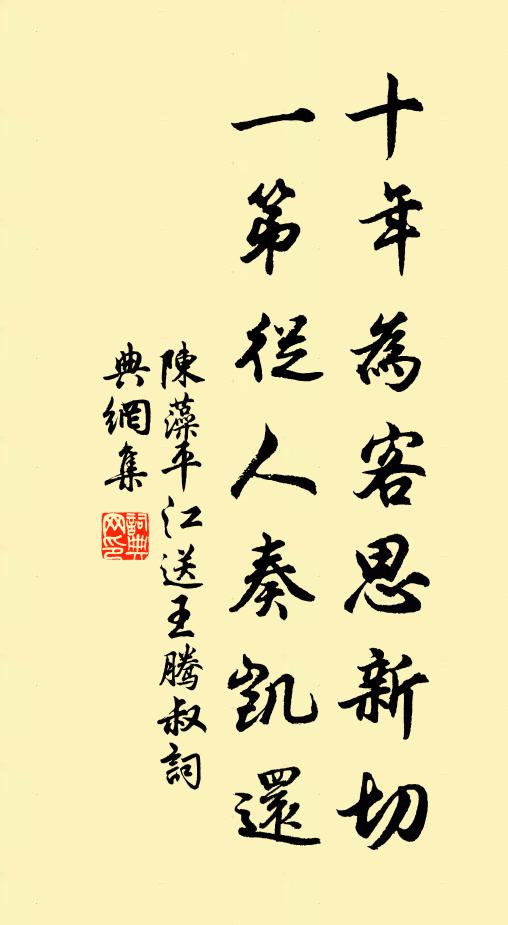 十年為客思新切
一第從人奏凱還
陳藻平江送王騰叔詞
典網集
詞典網印